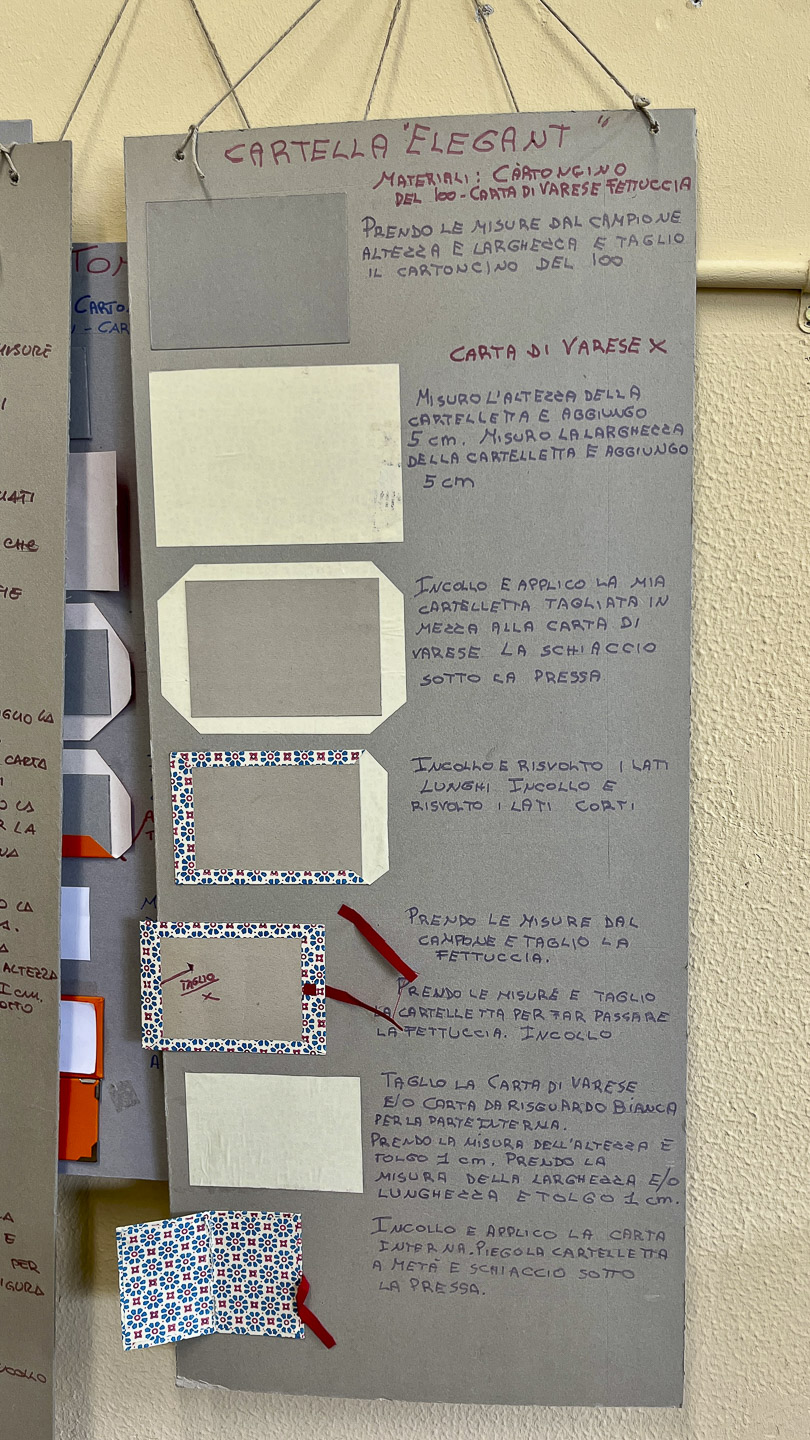 CARTELLA "ELEGANT"
MATERIALI: CARTONCINO
DEL 100-CARTA DI VARESE FETTUCCIA
PRENDO LE MISURE DAL CAMPIONE
ALTEZZA E LARGHEZZA E TAGLIO
IL CARTONCINO DEL 100
CARTA DI VARESE X
MISURO L'ALTEZZA DELLA
CARTELLETTA E AGGIUNGO
5 cm. MISURO LA LARGHEZZA
DELLA CARTELLETTA E AGGIUNGO
5 cm
INCOLLO E APPLICO LA MIA
CARTELLETTA TAGLIATA IN
MEZZA ALLA CARTA DI
VARESE LA SCHIACCIO
SOTTO LA PRESSA
INCOLLO E RISVOLTO I LATI
LUNGHI INCOLLO E
RISVOLTO I LATI CORTI
PRENDO LE MISURE DAL
CAMPONE E TAGLIO LA
FETTUCCIA.
TAGLIO
X
PRENDO LE MISURE E TAGLIO
LA CARTELLETTA PER FAR PASSARE
LA FETTUCCIA. INCOLLO
TAGLIO LA CARTA DI VARESE
E/O CARTA DA RISGUARDO BIANCA
PER LA PARTE INTERNA.
PRENDO LA MISURA DELL'ALTEZZA E
TOLGO 1 cm. PRENDO LA
MISURA DELLA LARGHEZZA E/O
LUNGHEZZA E TOLGO 1 cm.
INCOLLO E APPLICO LA CARTA
INTERNA. PIEGO LA CARTELLETTA
A METÀ E SCHIACCIO SOTTO
LA PRESSA.
MISURE
CHE
CARTA
PER LA
ALTEZZA
1 cm.
E
PER
CARTO
- CAR